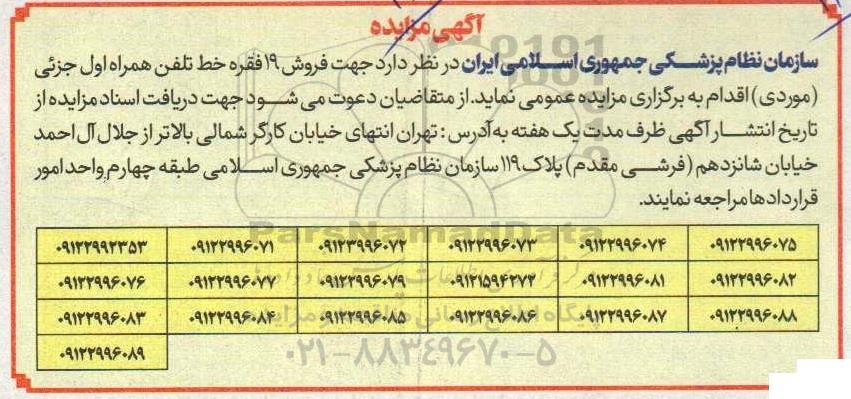 آگهی مزایده
سازمان نظام پزشکی جمهوری اسلامی ایران در نظر دارد جهت فروش ۱۹ فقره خط تلفن همراه اول جزئی
(موردی) اقدام به برگزاری مزایده عمومی نماید. از متقاضیان دعوت می شود جهت دریافت اسناد مزایده از
تاریخ انتشار آگهی ظرف مدت یک هفته به آدرس: تهران انتهای خیابان کارگر شمالی بالاتر از جلال آل احمد
خیابان شانزدهم (فرشی مقدم) پلاک ۱۱۹ سازمان نظام پزشکی جمهوری اسلامی طبقه چهارم واحد امور
قراردادها مراجعه نمایند.
ParsNamadData
۰۹۱۲۲۹۹۶۰۷۵ ۰۹۱۲۲۹۹۶۰۷۴ ۰۹۱۲۲۹۹۶۰۷۳ ۰۹۱۲۳۹۹۶۰۷۲ ۰۹۱۲۲۹۹۶۰۷۱ ۰۹۱۲۲۹۹۲۳۵۳
۰۹۱۲۲۹۹۶۰۸۲ ۰۹۱۲۲۹۹۶۰۸۱ ۰۹۱۲۱۵۹۴۲۷۴ ۰۹۱۲۲۹۹۶۰۷۹ ۰۹۱۲۲۹۹۶۰۷۷ ۰۹۱۲۲۹۹۶۰۷۶
۰۹۱۲۲۹۹۶۰۸۸ ۰۹۱۲۲۹۹۶۰۸۷ ۰۹۱۲۲۹۹۶۰۸۶ ۰۹۱۲۲۹۹۶۰۸۵ ۰۹۱۲۲۹۹۶۰۸۴ ۰۹۱۲۲۹۹۶۰۸۳
۰۹۱۲۲۹۹۶۰۸۹
۰۲۱-۸۸۳۴۹۶۷۰-۵